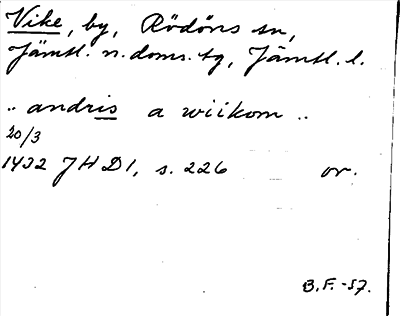 Vike, by, Rödöns sn,
Jämtl. n. doms. tg, Jämtl. l.
.. andris a wiikom ..
20/3
1432 JHD1, s. 226 or.
B.F.-57.